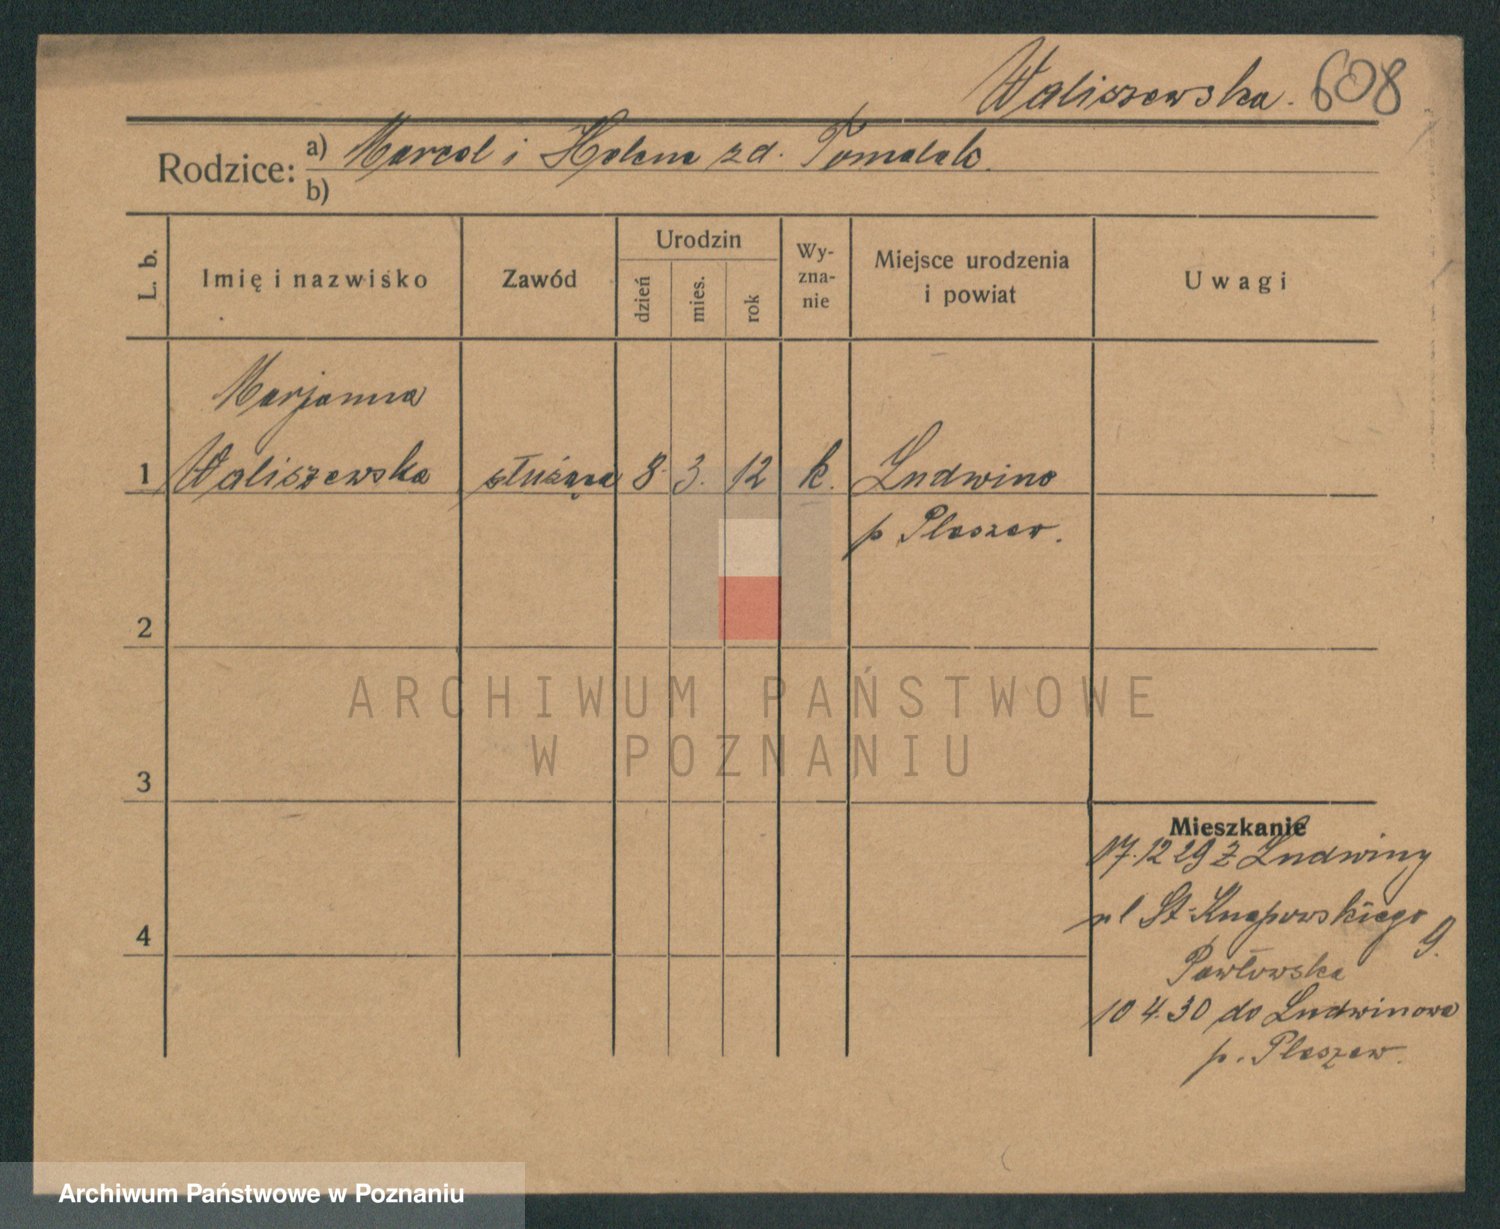 Waliszewska. 608
Rodzice: a) Marcel i Helena zd. Tomalak.
b)
L. b.
Imię i nazwisko
Zawód
Urodzin
dzień
mies.
rok
Wy-
zna-
nie
Miejsce urodzenia
i powiat
Uwagi
Marjanna
1 Waliszewska służąca 8. 3. 12 k. Ludwina
p Pleszew.
2
ARCHIWUM PAŃSTWOWE
W POZNANIU
3
Mieszkanie
17.12 29 z Ludwiny
ul St. Knapowskiego 9.
4
Pawłowska
10 4.30 do Ludwinowa
p. Pleszew.
Archiwum Państwowe w Poznaniu